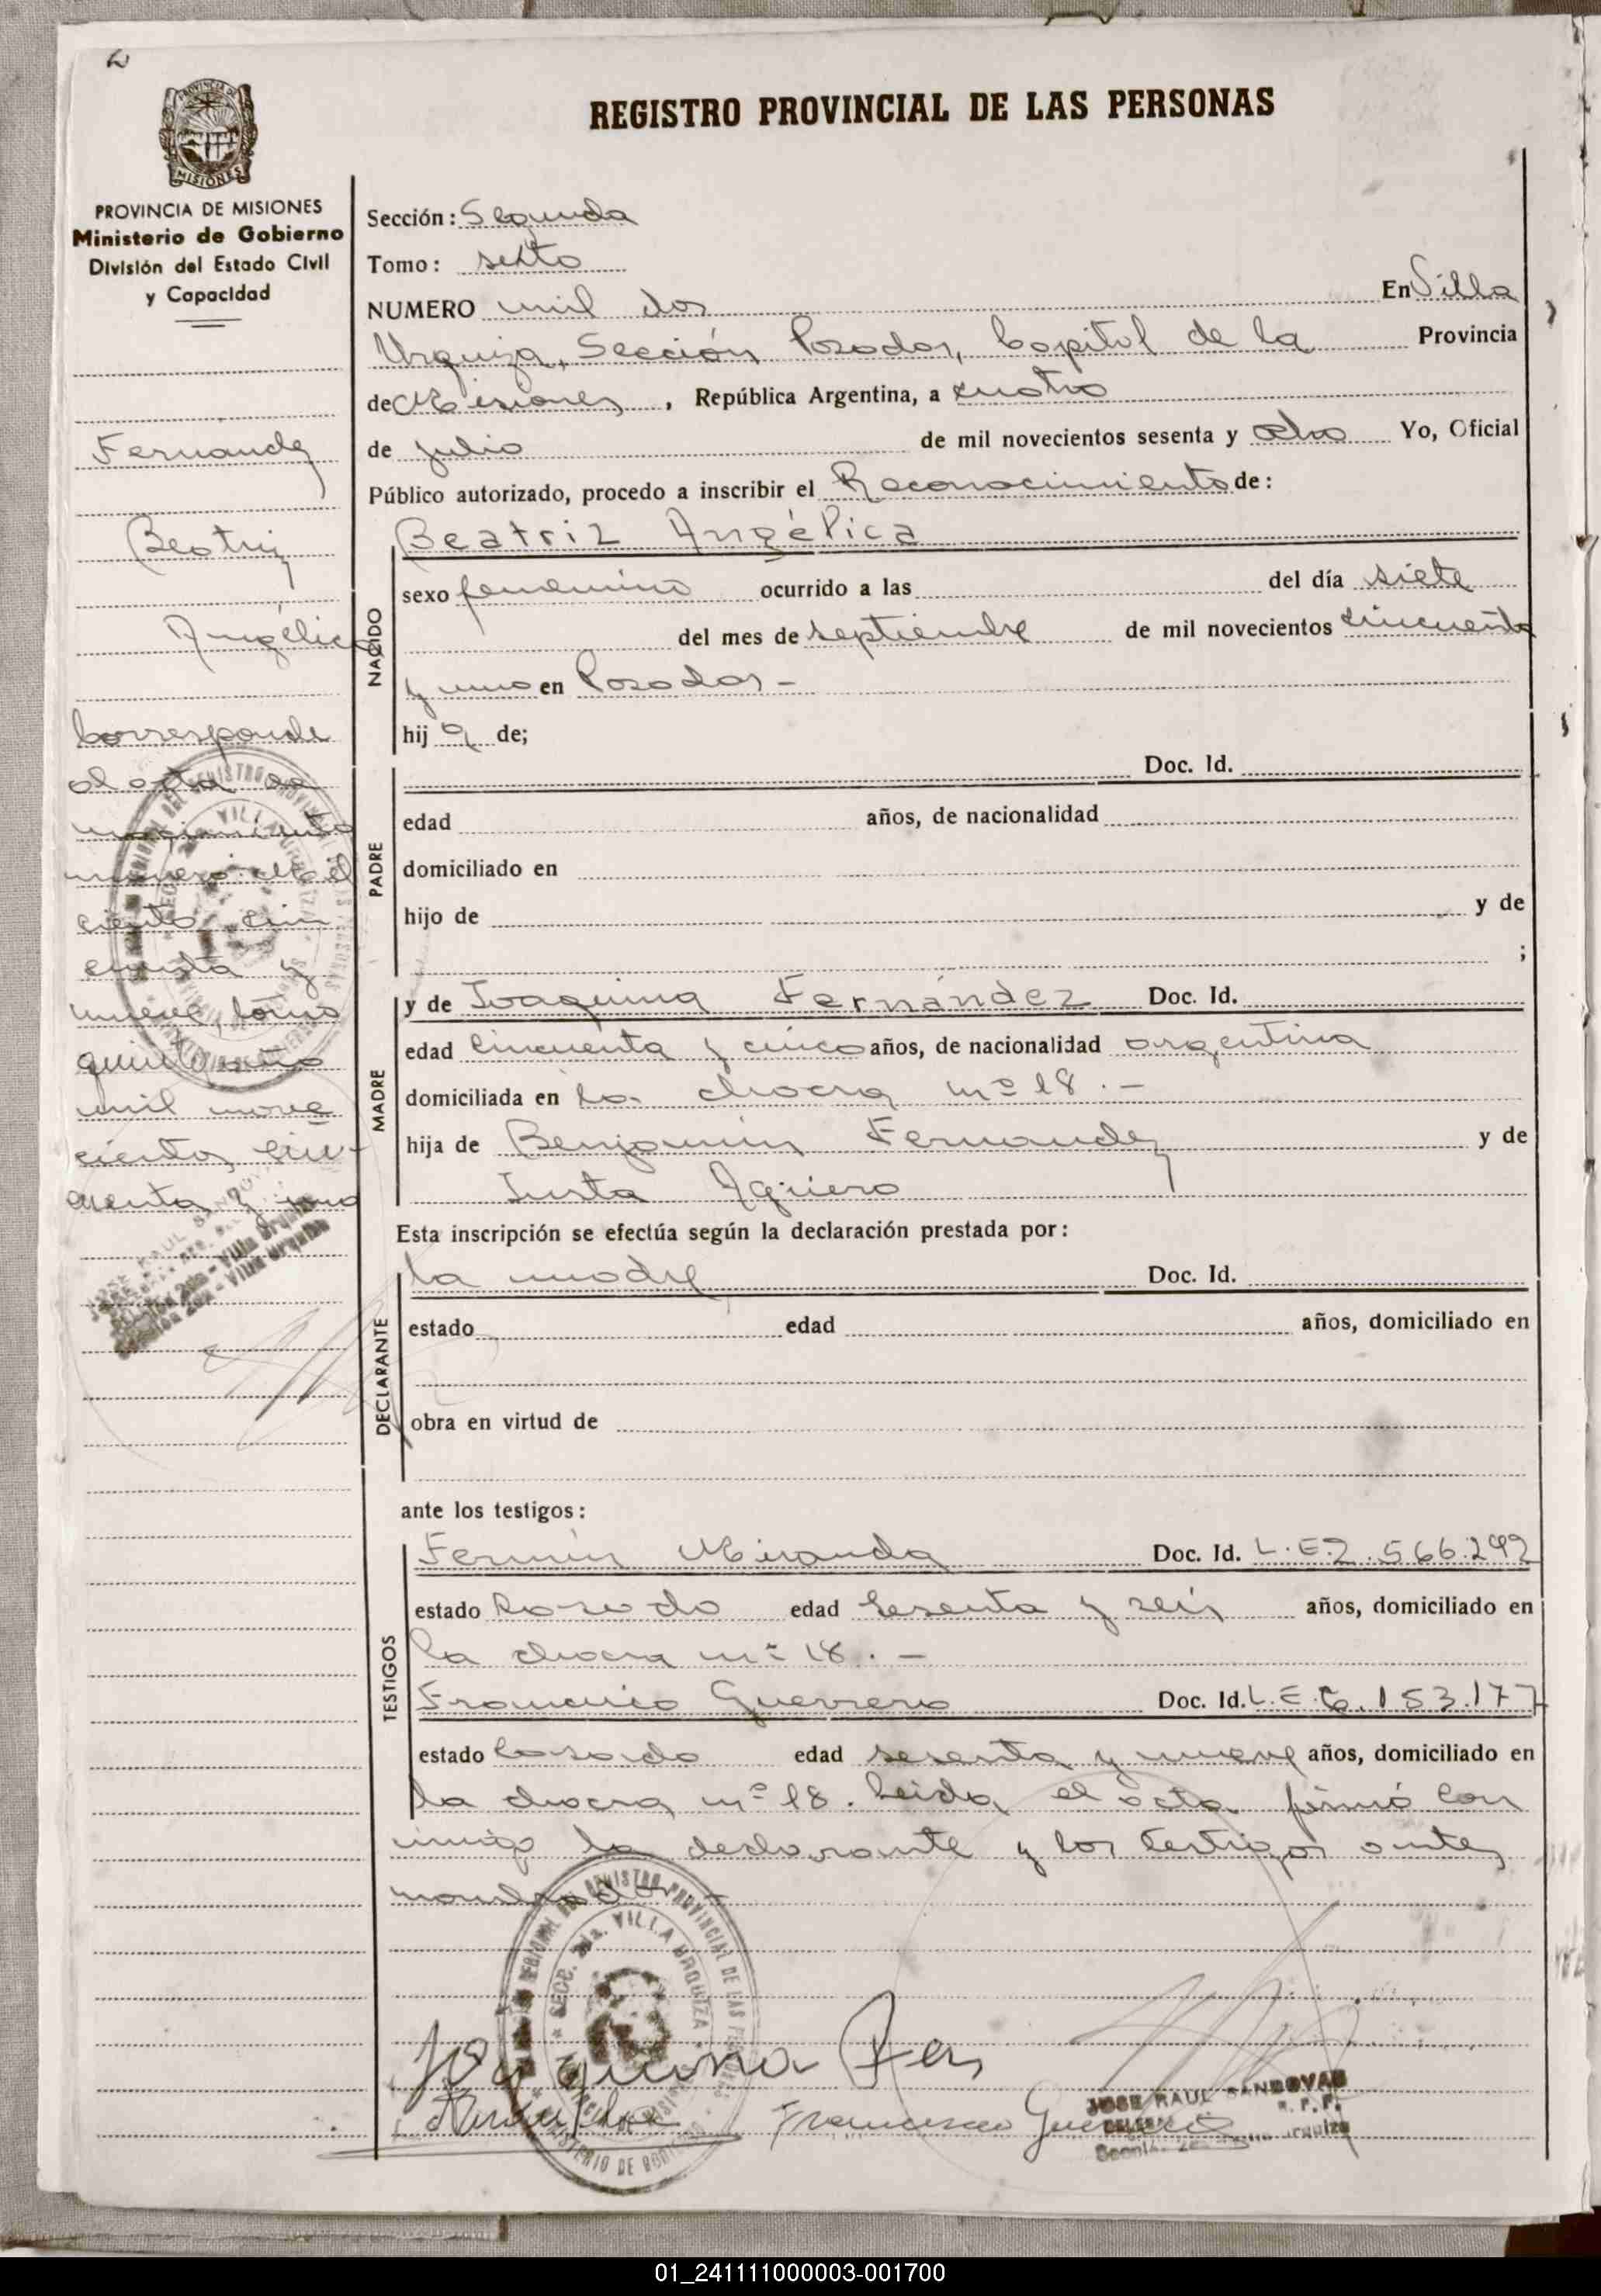 REGISTRO PROVINCIAL DE LAS PERSONAS
MISIONES
PROVINCIA DE MISIONES
Ministerio de Gobierno
División del Estado Civil
y Capacidad
Fernandez
Beatriz
Angélica
Corresponde
al acta de
nacimiento
número: Mil
ciento cin
cuenta y
nueve, tomo
quinto año
mil nove
cientos cin-
cuenta y uno
JOSE RAUL SANDOVAL
Sección 2da - Villa Urquiza
Sección: Segunda
Tomo: sexto
NUMERO mil dos En Villa
Urquiza, Sección Posadas, Capital de la Provincia
de Misiones, República Argentina, a cuatro
de julio de mil novecientos sesenta y ocho Yo, Oficial
Público autorizado, procedo a inscribir el Reconocimiento de:
NACIDO
Beatriz Angélica
sexo femenino ocurrido a las del día siete
del mes de septiembre de mil novecientos cincuenta
y uno en Posadas -
hij a de;
PADRE
Doc. Id.
edad años, de nacionalidad
domiciliado en
hijo de y de
;
MADRE
y de Joaquina Fernández Doc. Id.
edad Cincuenta y cinco años, de nacionalidad argentina
domiciliada en la chacra nº 18. -
hija de Benjamín Fernandez y de
Justa Agüero
Esta inscripción se efectúa según la declaración prestada por:
DECLARANTE
la madre Doc. Id.
estado edad años, domiciliado en
obra en virtud de
ante los testigos:
TESTIGOS
Fermín Miranda Doc. Id. L.E 2.566.292
estado Casado edad sesenta y seis años, domiciliado en
la chacra nº 18. -
Francisco Guerrero Doc. Id. L.E. 6.153.177
estado Casado edad sesenta y nueve años, domiciliado en
la chacra nº 18. Leida el acta firmó con
migo la declarante y los testigos antes
nombrados -
SECC. 2da. VILLA URQUIZA
REGISTRO PROVINCIAL DE LAS PERSONAS
MINISTERIO DE GOBIERNO
Joaquina Fer
Francisco Guerrero
JOSE RAUL SANDOVAL
01_241111000003-001700